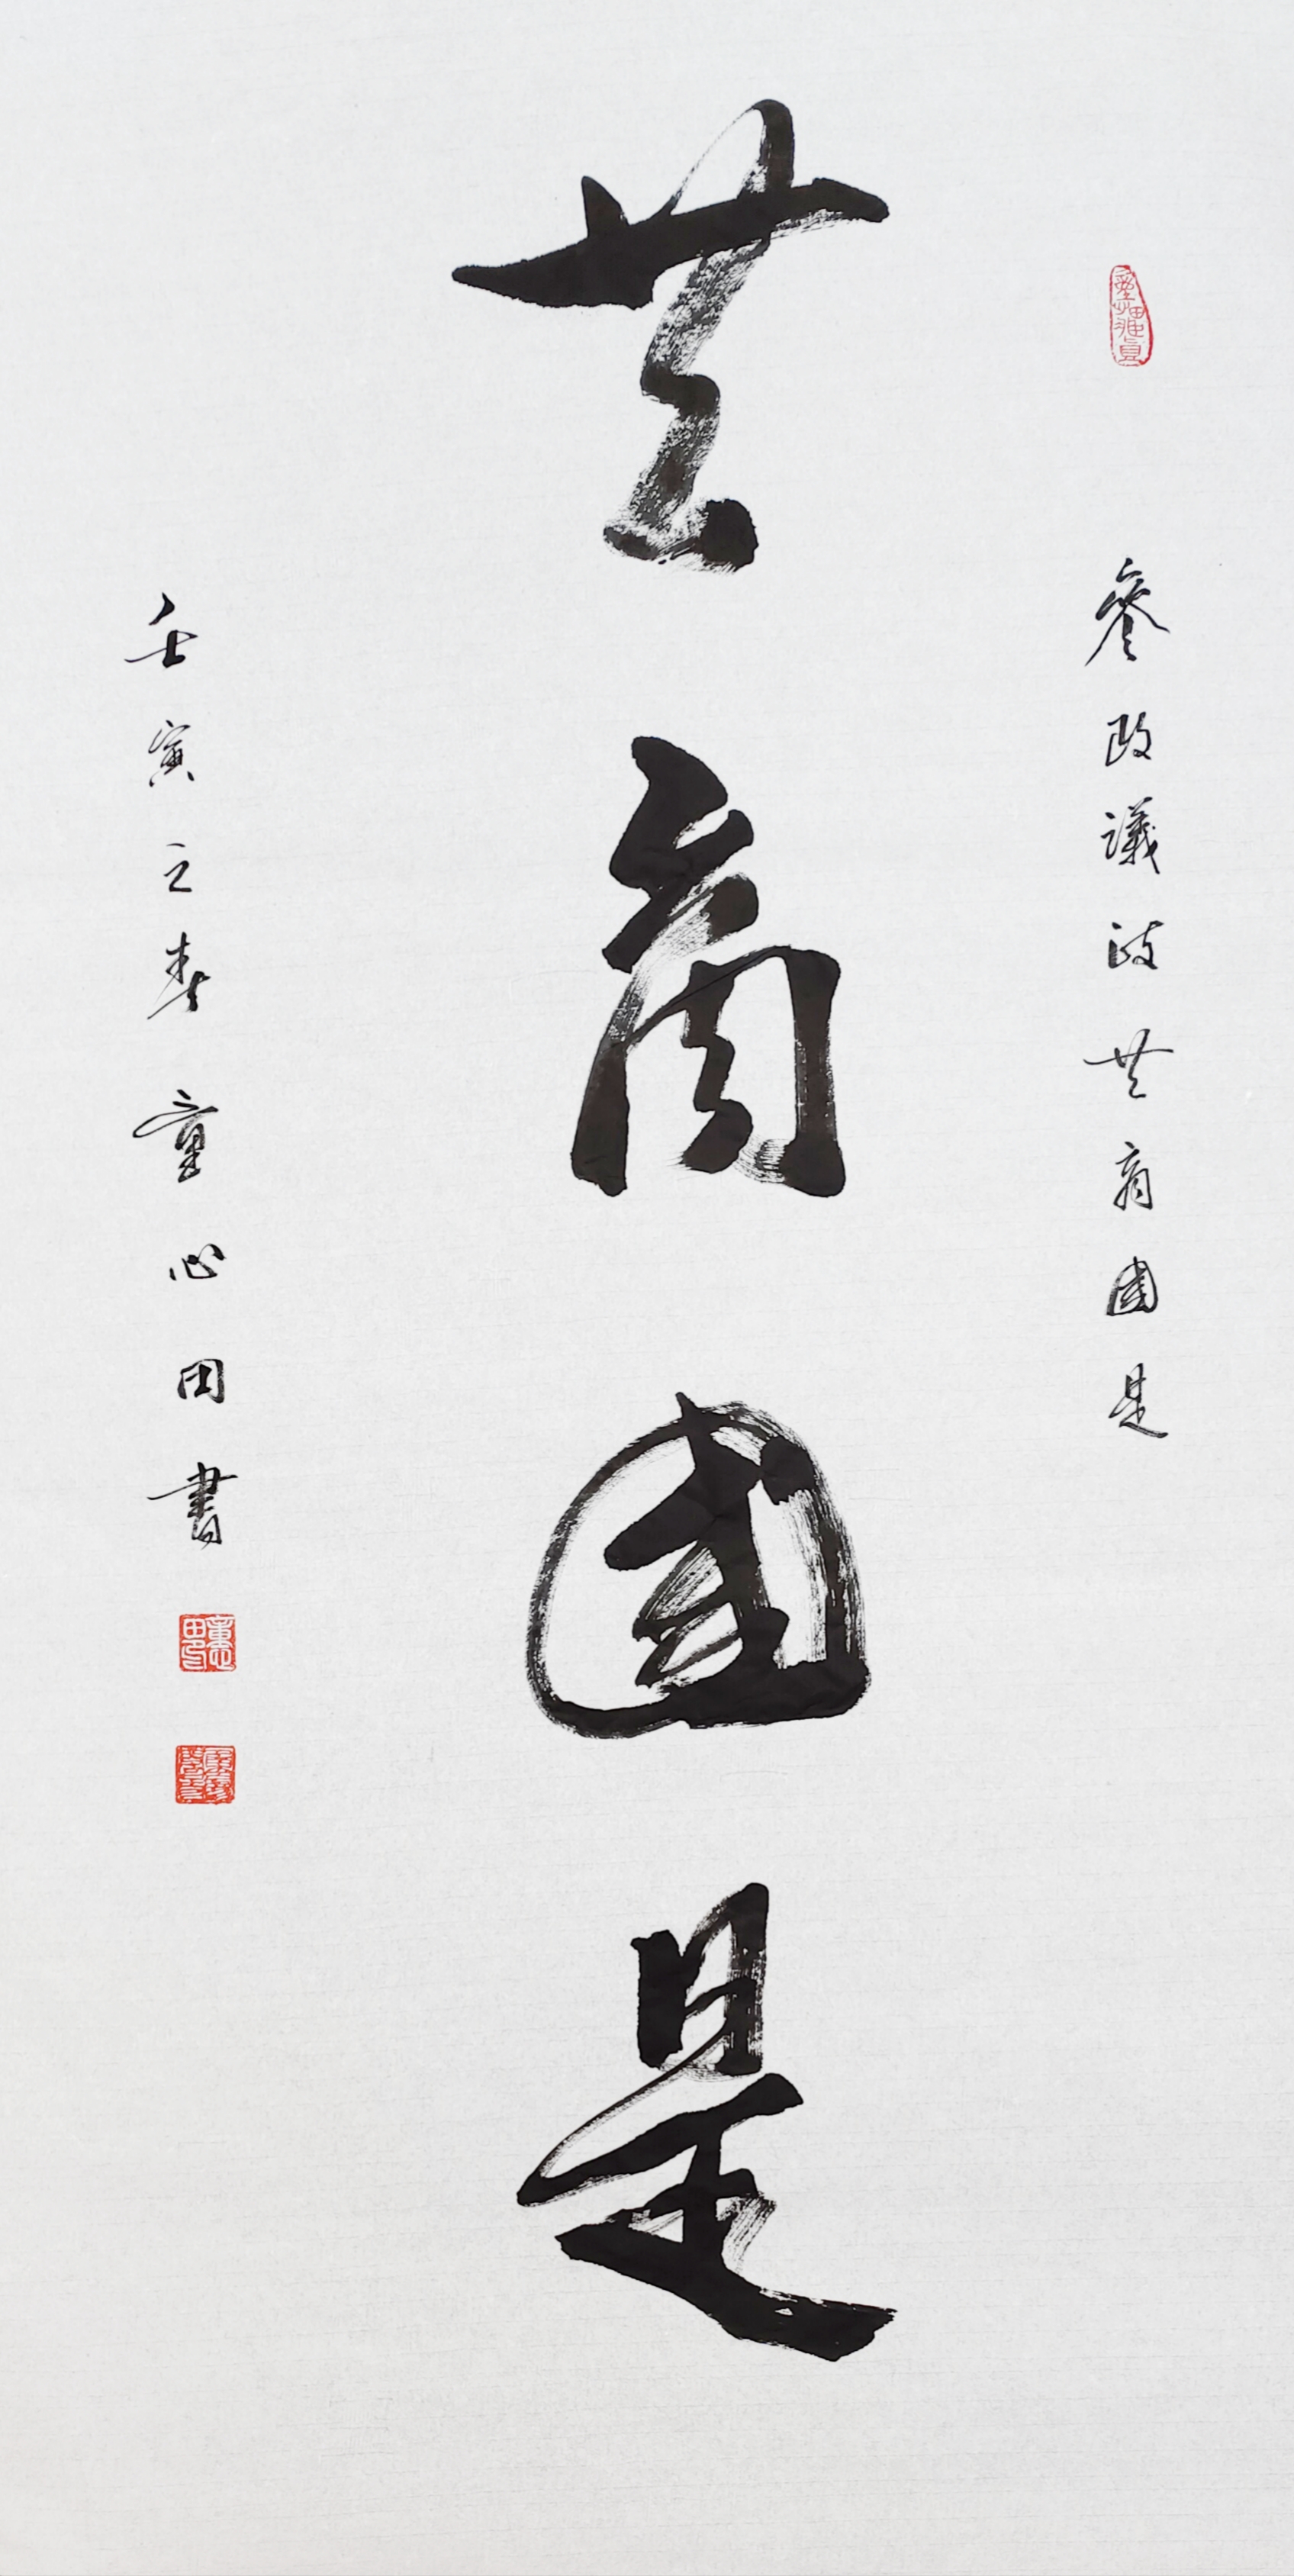 參政議政共商國是
共商國是
壬寅之春童心田書